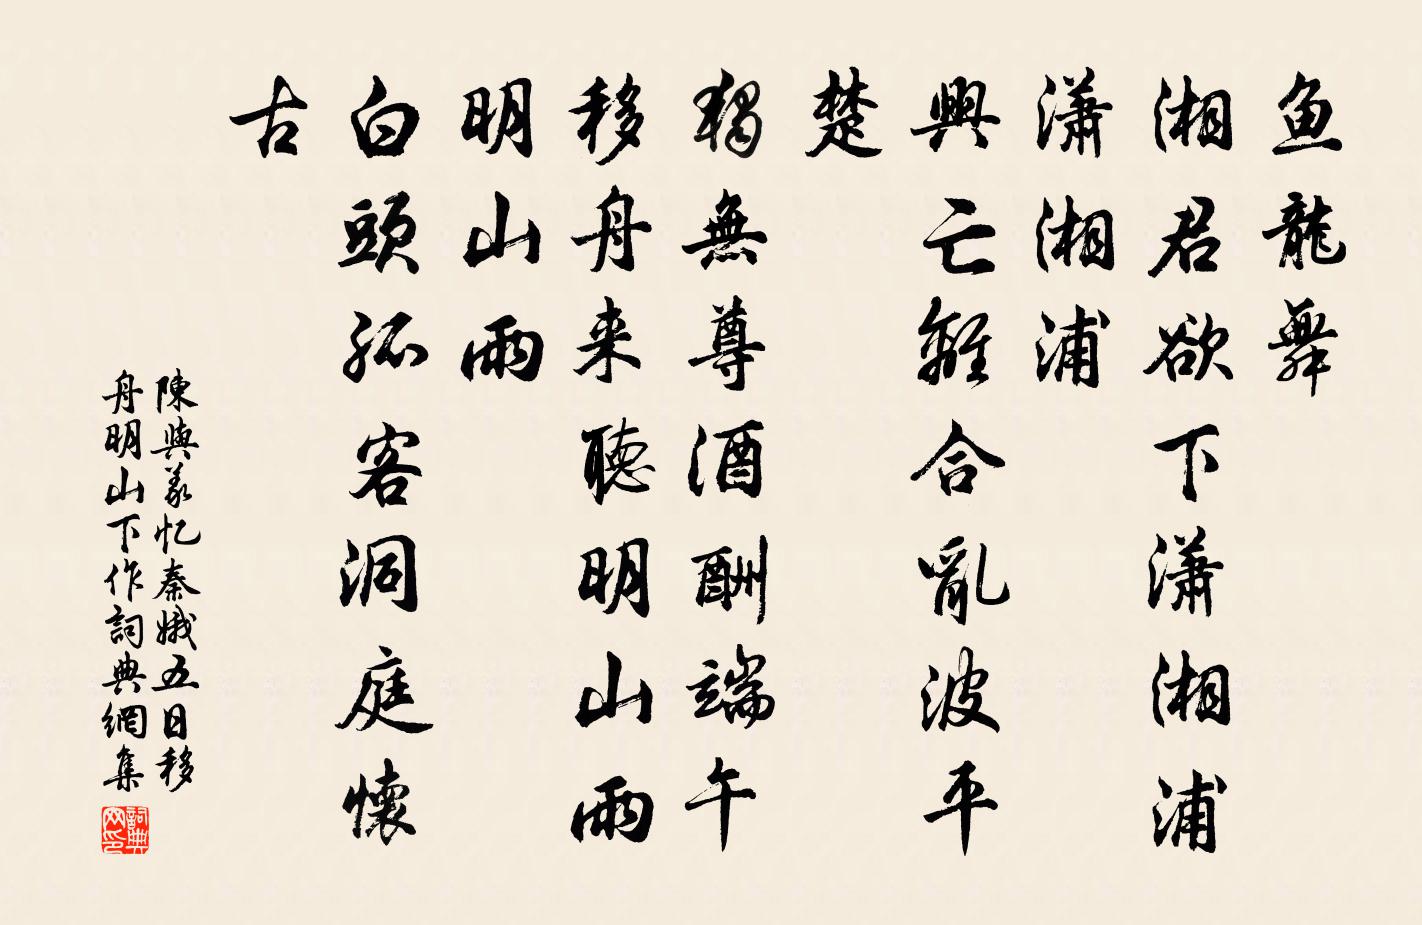 魚龍舞
湘君欲下瀟湘浦
瀟湘浦
興亡離合亂波平
楚
獨無尊酒酬端午
移舟来聽明山雨
明山雨
白頭孤客洞庭懷
古
陳與義忆秦娥五日移
舟明山下作詞典網集
詞典
网印